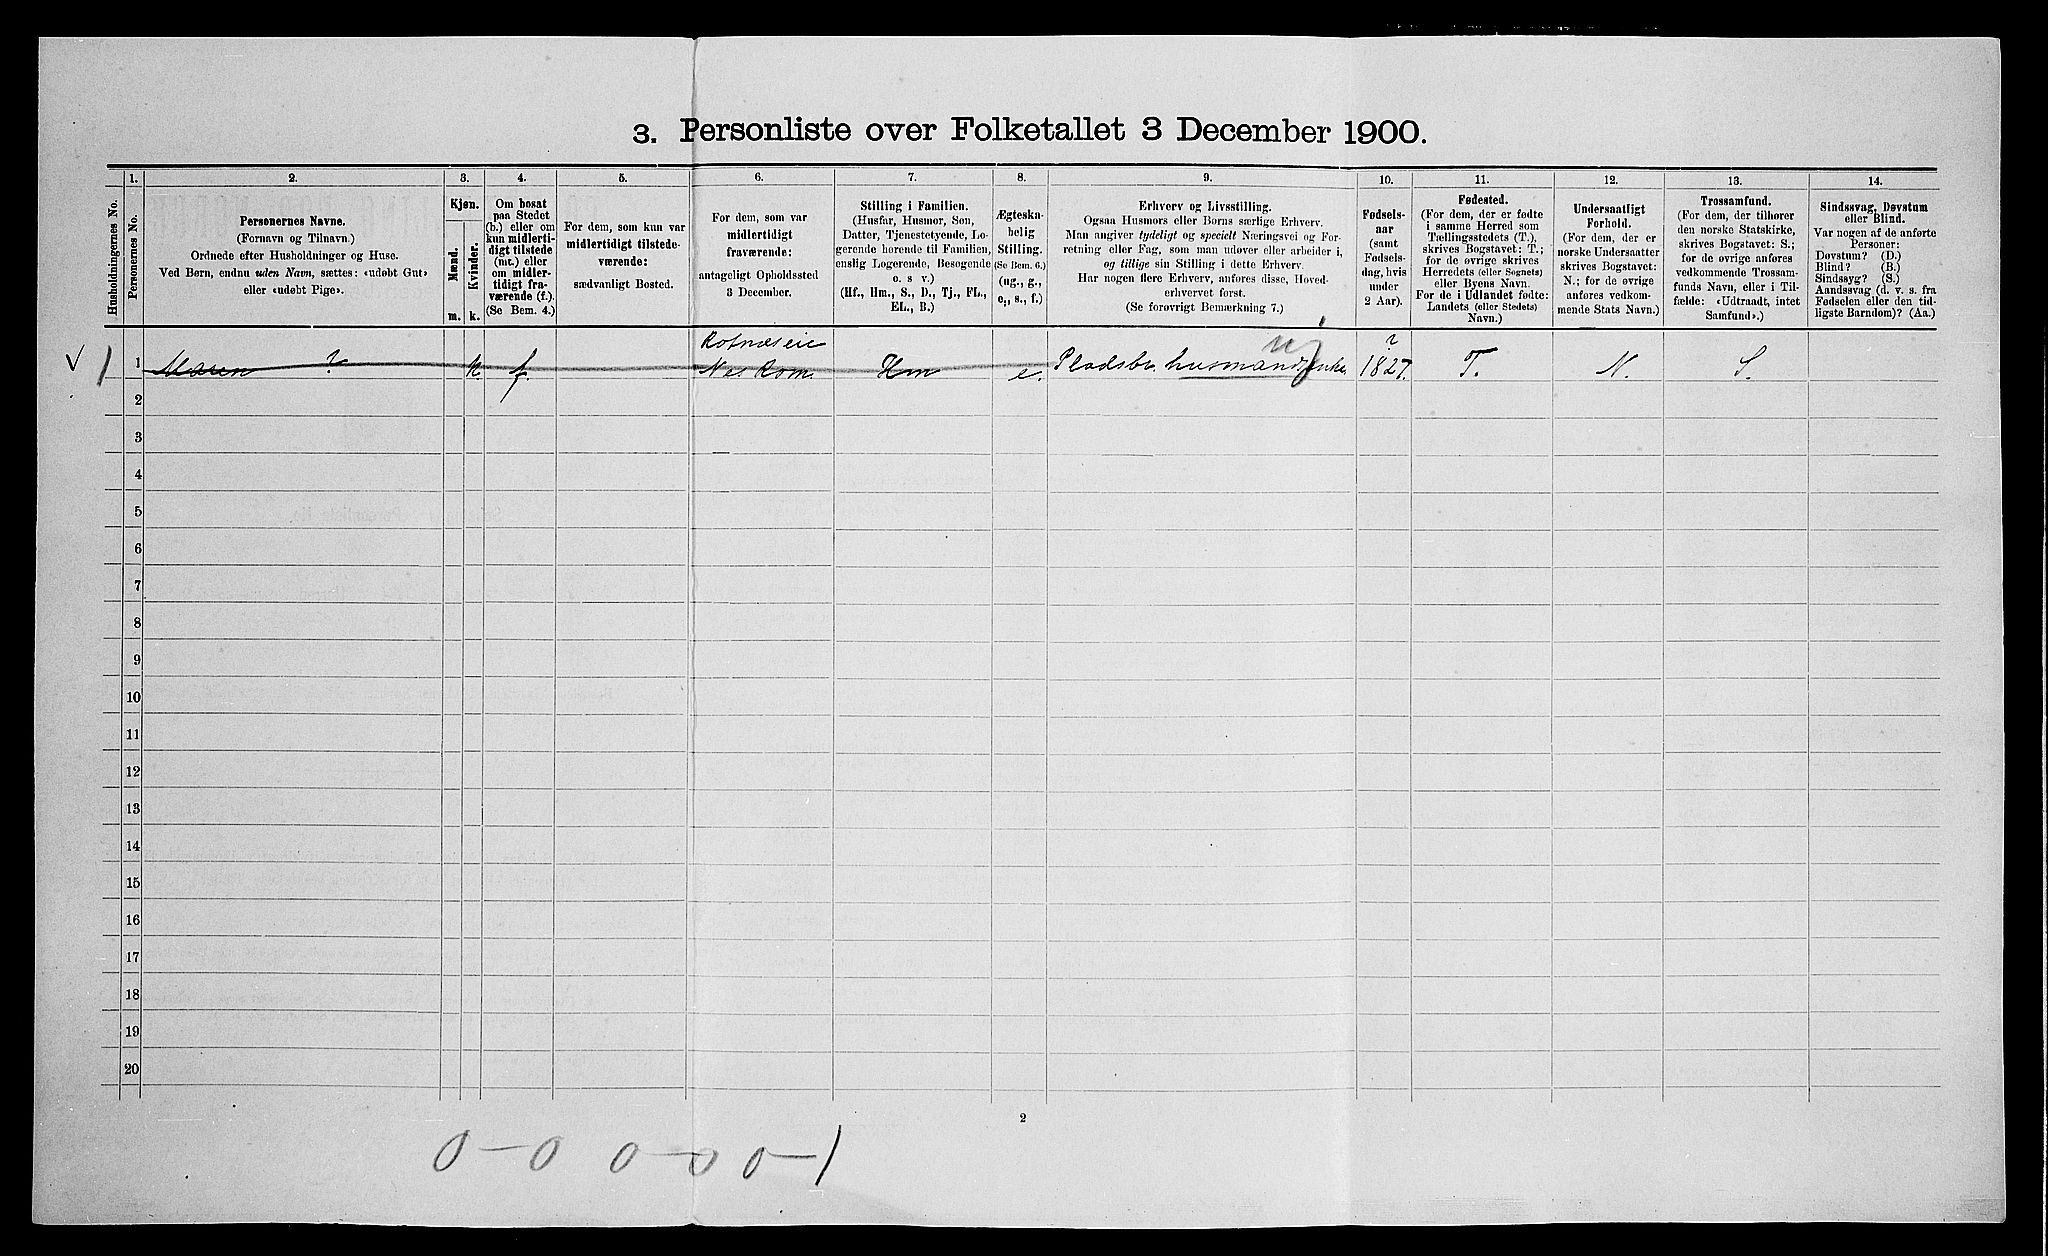 3. Personliste over Folketallet 3 December 1900.
Husholdningernes No.
1.
Personernes No.
2.
Personernes Navne.
(Fornavn og Tilnavn.)
Ordnede efter Husholdninger og Huse.
Ved Børn, endnu uden Navn, sættes: «udøbt Gut»
eller «udøbt Pige».
3.
Kjøn.
Mænd.
Kvinder.
m. k.
4.
Om bosat
paa Stedet
(b.) eller om
kun midlerti-
digt tilstede
(mt.) eller
om midler-
tidigt fra-
værende (f.).
(Se Bem. 4.)
5.
For dem, som kun var
midlertidigt tilstede-
værende:
sædvanligt Bosted.
6.
For dem, som var
midlertidigt
fraværende:
antageligt Opholdssted
3 December.
7.
Stilling i Familien.
(Husfar, Husmor, Søn,
Datter, Tjenestetyende, Lo-
gerende hørende til Familien,
enslig Logerende, Besøgende
o. s. v.)
(Hf., Hm., S., D., Tj., FL.,
EL., B.)
8.
Ægteska-
belig
Stilling.
(Se Bem. 6.)
(ug., g.,
e., s., f.)
9.
Erhverv og Livsstilling.
Ogsaa Husmors eller Børns særlige Erhverv.
Man angiver tydeligt og specielt Næringsvei og For-
retning eller Fag, som man udøver eller arbeider i,
og tillige sin Stilling i dette Erhverv.
Har nogen flere Erhverv, anføres disse, Hoved-
erhvervet først.
(Se forøvrigt Bemærkning 7.)
10.
Fødsels-
aar
(samt
Fødsels-
dag, hvis
under
2 Aar).
11.
Fødested.
(For dem, der er fødte
i samme Herred som
Tællingsstedets (T.),
skrives Bogstavet: T.;
for de øvrige skrives
Herredets (eller Sognets)
eller Byens Navn.
For de i Udlandet fødte:
Landets (eller Stedets)
Navn.)
12.
Undersaatligt
Forhold.
(For dem, der er
norske Undersaatter
skrives Bogstavet:
N.; for de øvrige
anføres vedkom-
mende Stats Navn.)
13.
Trossamfund.
(For dem, der tilhører
den norske Statskirke,
skrives Bogstavet: S.;
for de øvrige anføres
vedkommende Trossam-
funds Navn, eller i Til-
fælde: «Udtraadt, intet
Samfund».)
14.
Sindssvag, Døvstum
eller Blind.
Var nogen af de anførte
Personer:
Døvstum? (D.)
Blind? (B.)
Sindssyg? (S.)
Aandssvag (d. v. s. fra
Fødselen eller den tid-
ligste Barndom)? (Aa.)
Rotnæseie ?
V 1 1 Maren ? k. f. Nes Rom. Hm e. Pladsbr. husmandsenke 1827. T. N. S.
2
3
4
5
6
7
8
9
10
11
12
13
14
15
16
17
18
19
20
2
0-0 0-0 0-1